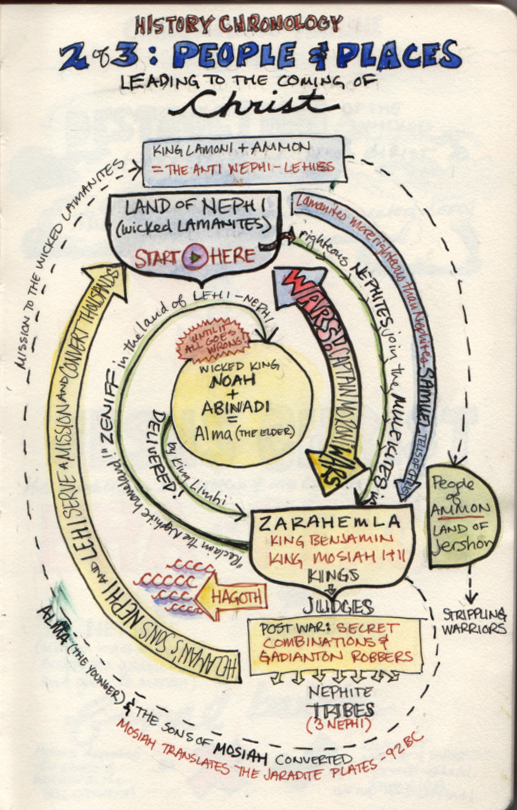 HISTORY CHRONOLOGY
2 of 3: PEOPLE & PLACES
LEADING TO THE COMING OF
Christ
KING LAMONI + AMMON
= THE ANTI NEPHI-LEHIES
LAND OF NEPHI
(WICKED LAMANITES)
START HERE
MISSION TO THE WICKED LAMANITES
Lamanites more righteous than Nephites SAMUEL TELLS OF CHRIST
righteous NEPHITES join the MULEKITES in
WARS! CAPTAIN MORONI WARS
"Reclaim the Nephite homeland!" ZENIFF in the land of LEHI-NEPHI
UNTIL IT
ALL GOES
WRONG
WICKED KING
NOAH
+
ABINADI
=
Alma (THE ELDER)
DELIVERED!
by King Limhi
HELAMAN'S SONS NEPHI AND LEHI SERVE A MISSION AND CONVERT THOUSANDS
ZARAHEMLA
KING BENJAMIN
KING MOSIAH I+II
KINGS
People
of
AMMON
LAND OF
Jershon
HAGOTH
JUDGES
STRIPPLING
WARRIORS
POST WAR: SECRET
COMBINATIONS &
GADIANTON ROBBERS
NEPHITE
TRIBES
(3 NEPHI)
ALMA (THE YOUNGER) & THE SONS OF MOSIAH CONVERTED
MOSIAH TRANSLATES THE JARADITE PLATES -92BC